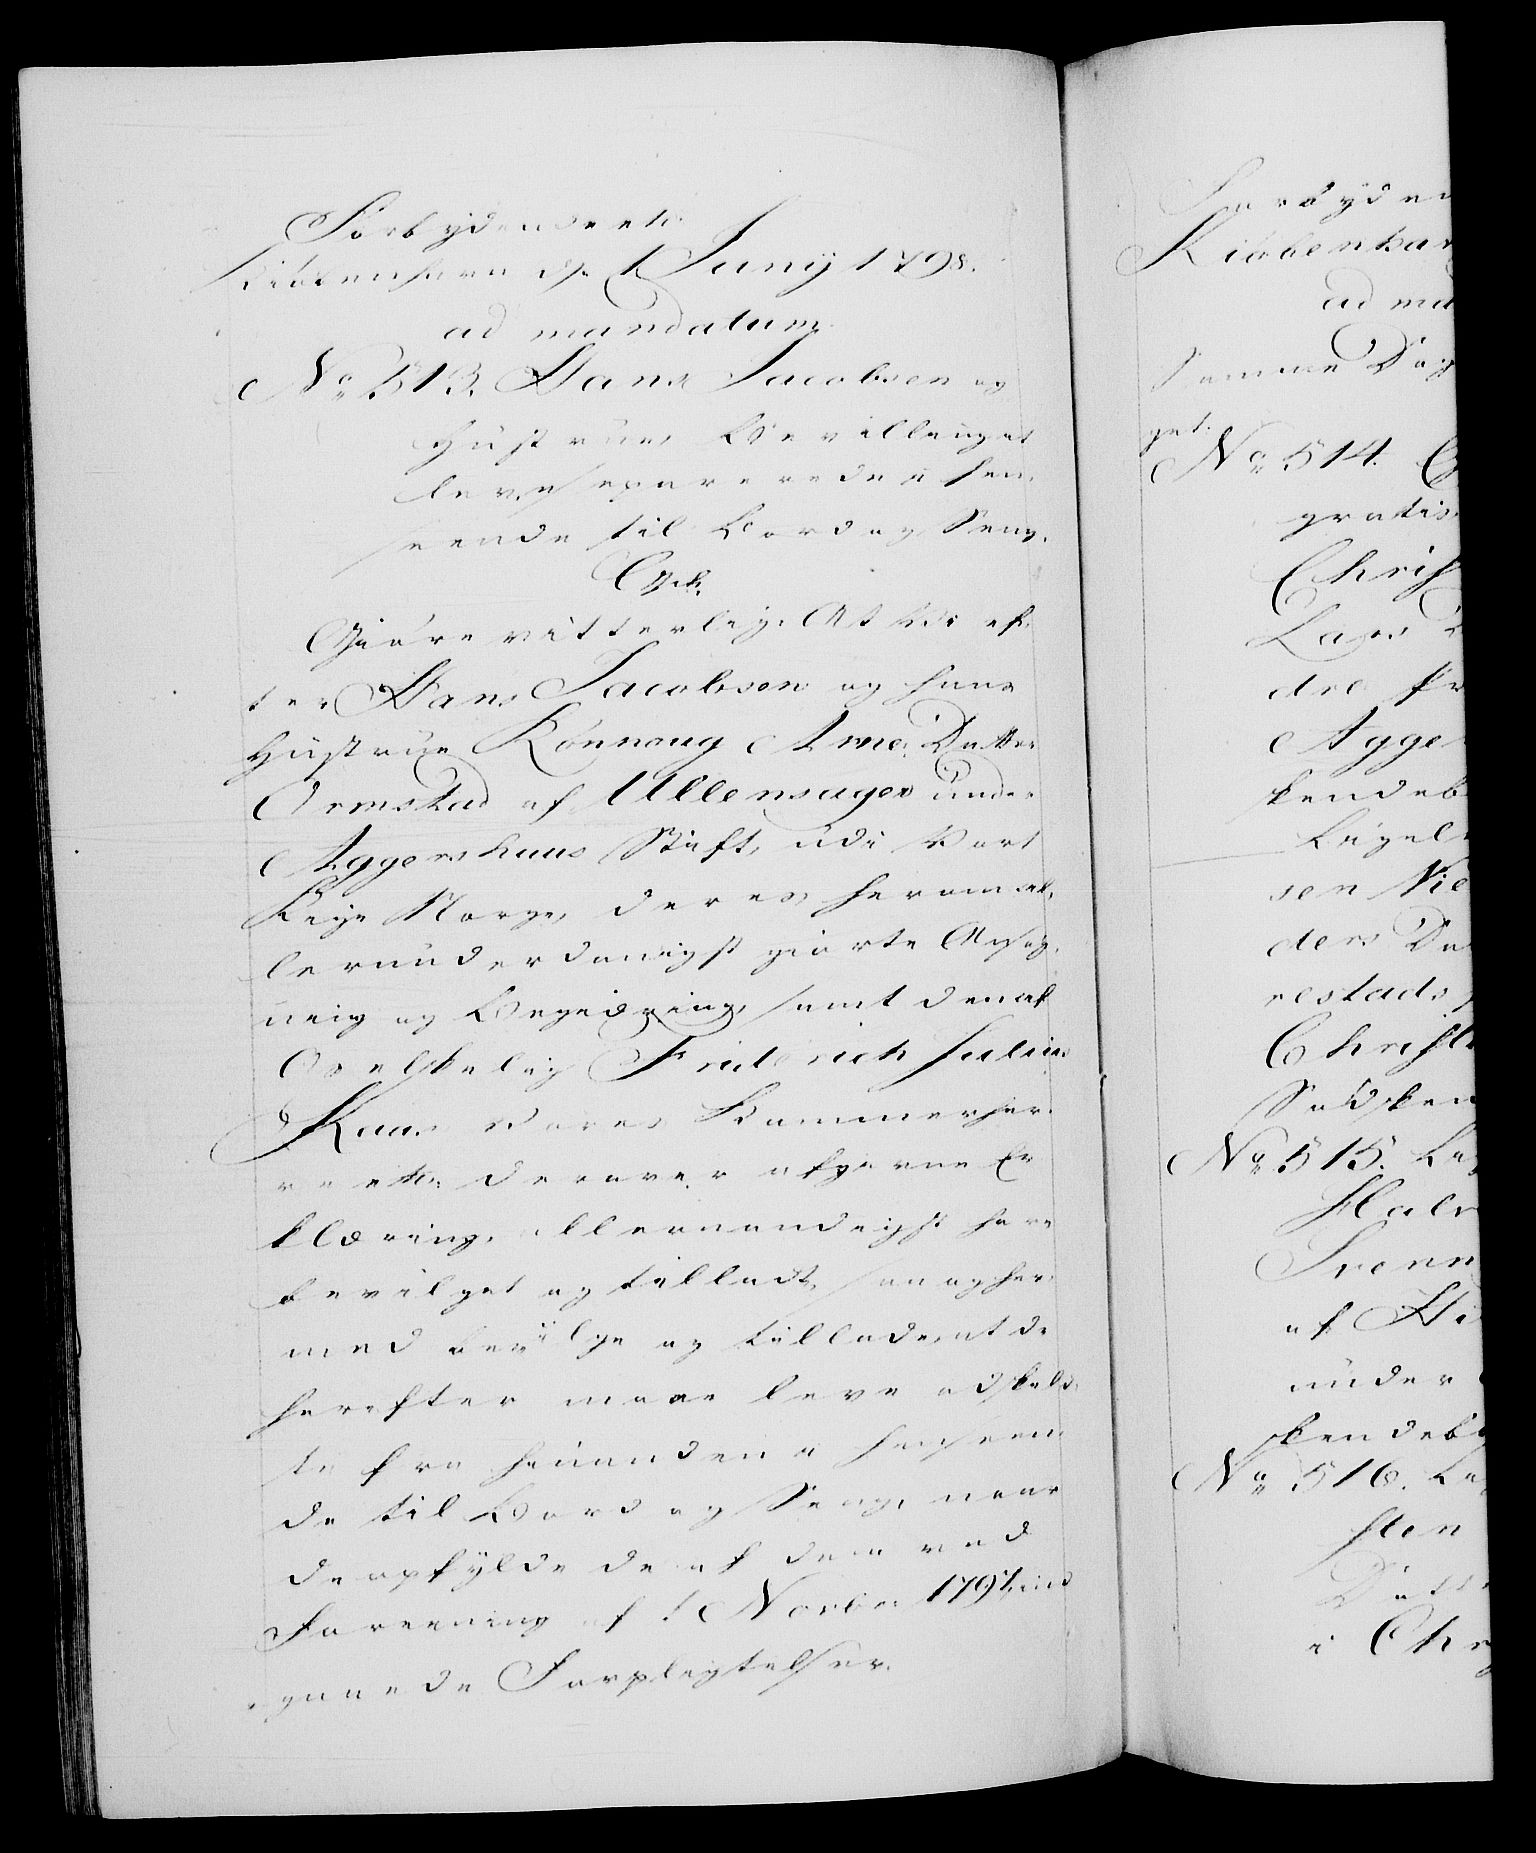 Forbydende etc.
Kiøbenhavn d. 1 Junij 1798.
ad mandatum
No 513. Hans Jacobsen og
Hustrue, Bevillinget
leve separerede i hen-
seende til Bord og Seng.
C 7de.
Giøre vitterlig: At Vi ef-
ter Hans Jacobsen og hans
Hustrue Rønnaug Arne Datter
Ormstad af Ullensager under
Aggershuus Stift, udi Vort
Rige Norge, deres herom al-
lerunderdanigst giorte Ansøg-
ning og Begiæring, samt den af
Os elskelig Friderich Julius
Kaas Vores Kammerher-
re etc. derover afgivne Er-
klæring, allernaadigst have
bevilget og tilladt, saa og her-
med bevilge og tillade, at de
herefter maae leve adskild-
te fra hinanden i henseen-
de til Bord og Seng, naar
de opfylde de af dem ved
Foreening af 1 Novbr. 1797, ind-
gaaede Forpligtelser.
Forbyden
Kiøbenhav
ad ma
Samme Dag
get:
No 514.
gratis
Christ
Lars
dre fr
Agger
kendeb
Ligel
sen Nie
ders Da
restads,
Christi
Sødsken
No 515. Lig
Halv
Svenn
af Hi
under
skendeb
No 516. Li
sten
Datt
i Chr